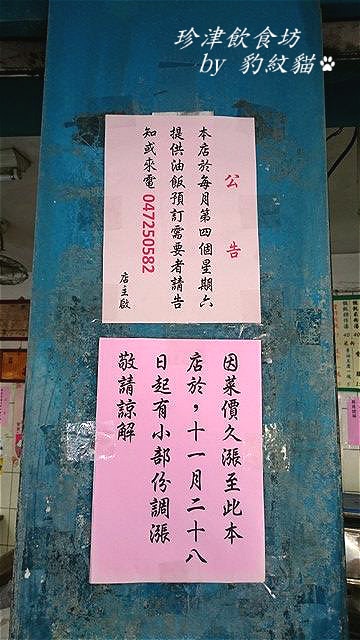 珍津飲食坊
by 豹紋貓
公告
本店於每月第四個星期六
提供油飯預訂需要者請告
知或來電047250582
店主啟
因菜價久漲至此本
店於，十一月二十八
日起有小部份調漲
敬請諒解